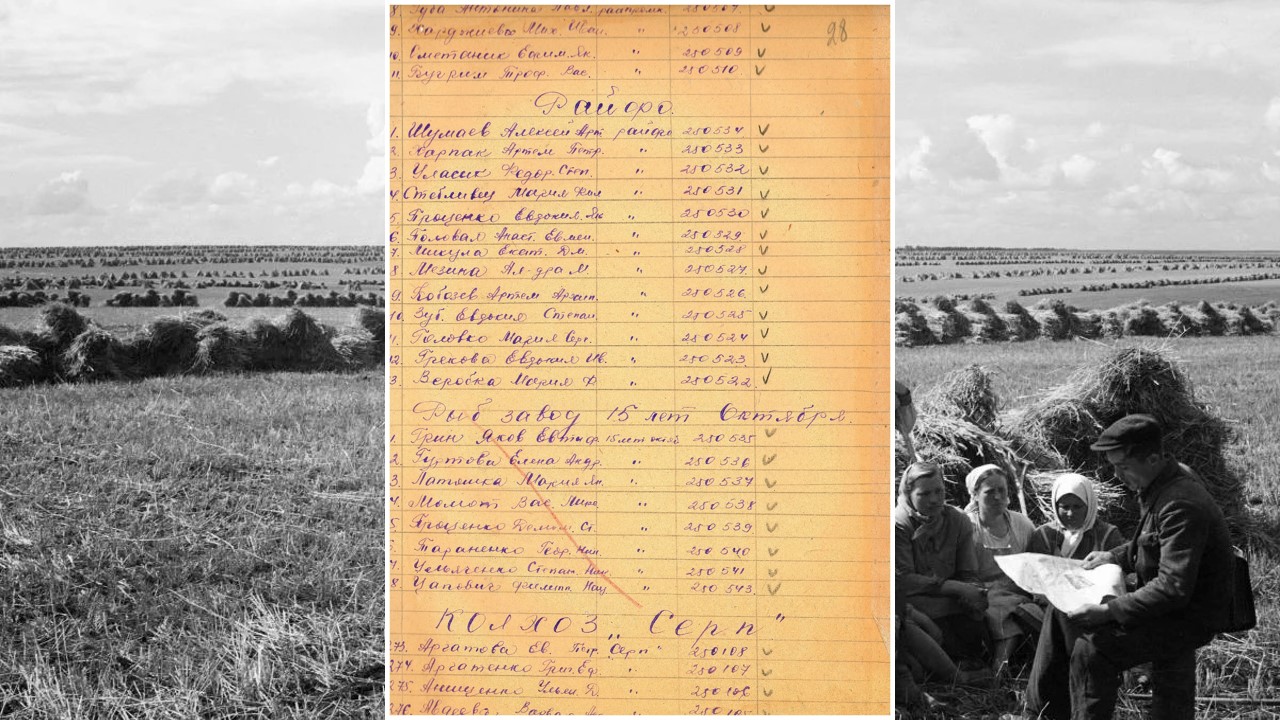 28
8 Губа Антонина Павл. райпромк. 250507
9. Харджиева Мих. Иван. " 250508
10. Сметаник Ефим. Як. " 250509
11. Бугрим Троф. Вас. " 250510
Райфо.
1. Шумаев Алексей Арт. райфо 250534
2. Харпак Артем Петр. " 250533
3. Уласик Федор. Степ. " 250532
4. Стебливец Мария " 250531
5. Проценко Евдокия. Як " 250530
6. Головал Анаст. Евмен. " 250529
7. Микула Екат. Дм. " 250528
8 Мезина Ал-дра М. " 250527
9. Кобозев Артем " 250526
10. Зуб. Евдокия Степан. " 250525
11. Головко Мария Серг. " 250524
12. Грекова Евдокия Ив. " 250523
3. Воробка Мария Ф. " 250522.
Рыб завод 15 лет Октября.
1. Грин Яков 15 лет 250535
2. Гуртова Елена Андр. " 250536
3. Латышка Мария Ян. " 250537
4. Момот Вас. " 250538
5. Проценко Ст. " 250539
Тараненко Геор. Ник. " 250540
7. Ульяченко Степан. " 250541
8. Цапович Филипп " 250543
Колхоз "Серп"
273. Аргатова Ев. Петр. "Серп" 250108
274. Аргатенко Григ. Еф. " 250107
275. Анищенко Ульян. Д. " 250106
276. Авдеева